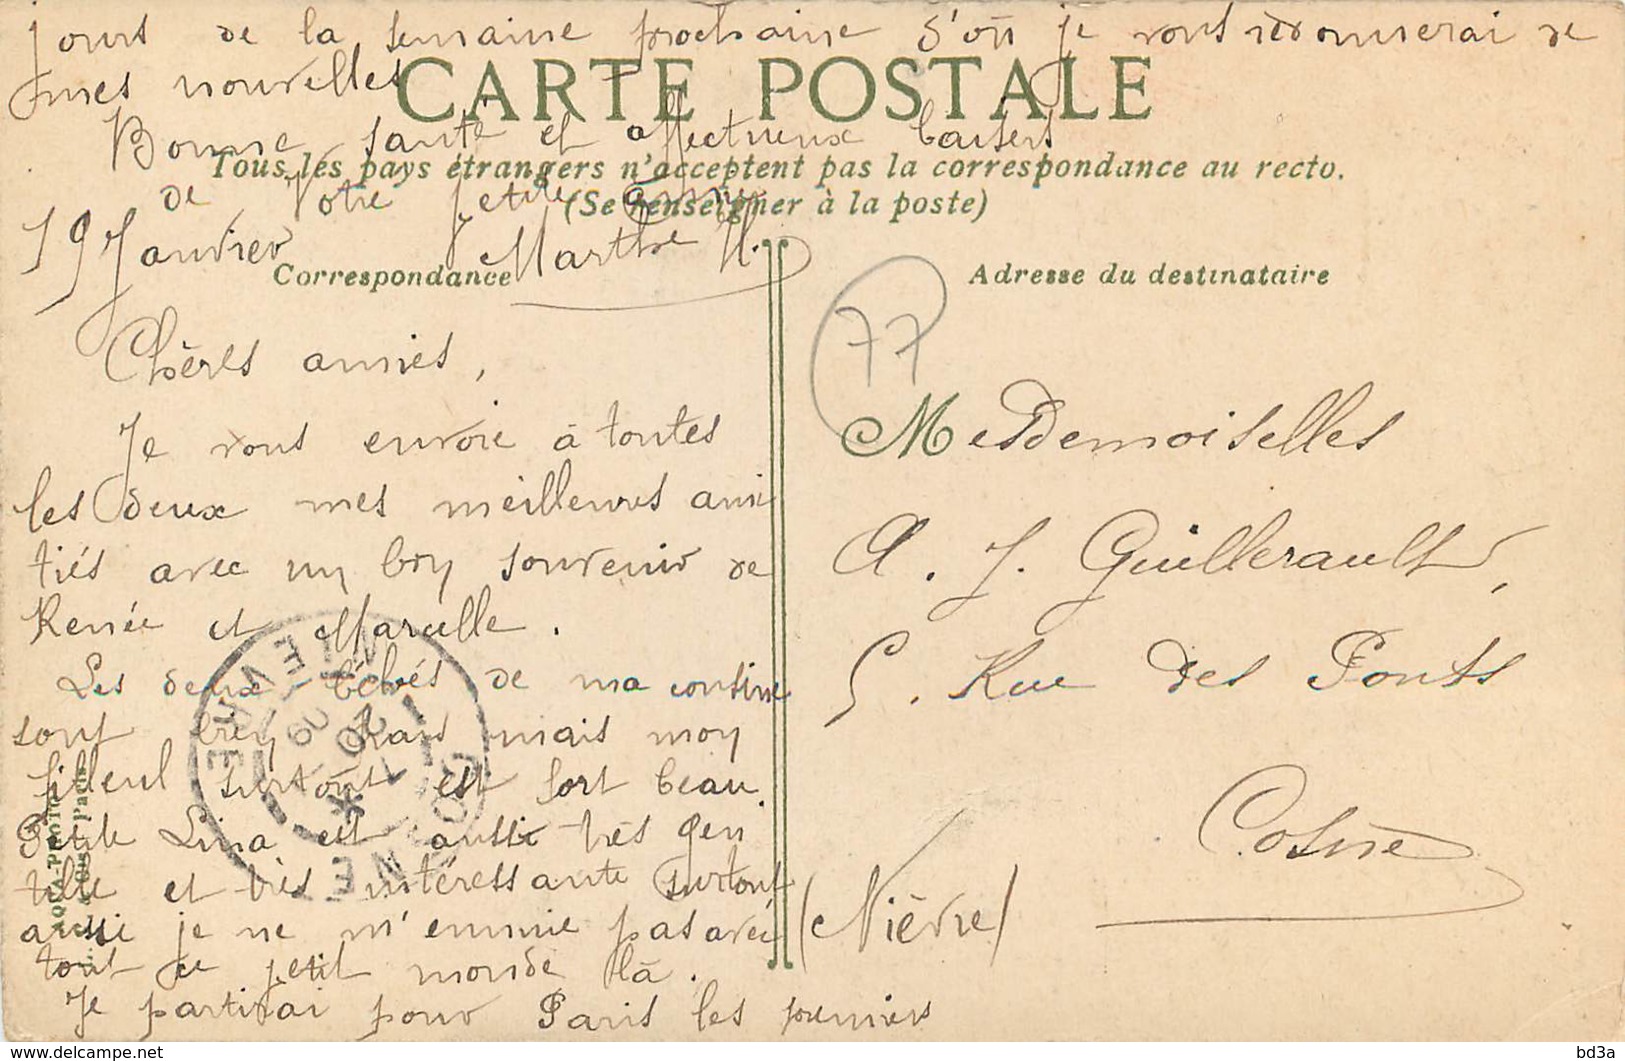 jours de la semaine prochaine d'où je vous redonnerai de
mes nouvelles
CARTE POSTALE
Bonne santé et affectueux baisers
Tous les pays étrangers n'acceptent pas la correspondance au recto.
de Votre petite amie
(Se renseigner à la poste)
19 Janvier Marthe H.
Correspondance
Adresse du destinataire
77
Chères amies,
Je vous envoie à toutes
les deux mes meilleures ami
tiés avec un bon souvenir de
Renée et Marcelle.
Les deux bébés de ma cousine
sont bien beaux mais mon
filleul surtout est fort beau.
Petite Lina est aussi très gen
tille et très intéressante surtout
aussi je ne m'ennuie pas avec
tout ce petit monde là.
Je partirai pour Paris les premiers
Mesdemoiselles
A. J. Guillerault,
5. Rue des Ponts
Cosne
(Nièvre)
COSNE
NIEVRE
20
09
AQUA-PHOTO
Paris
bd3a